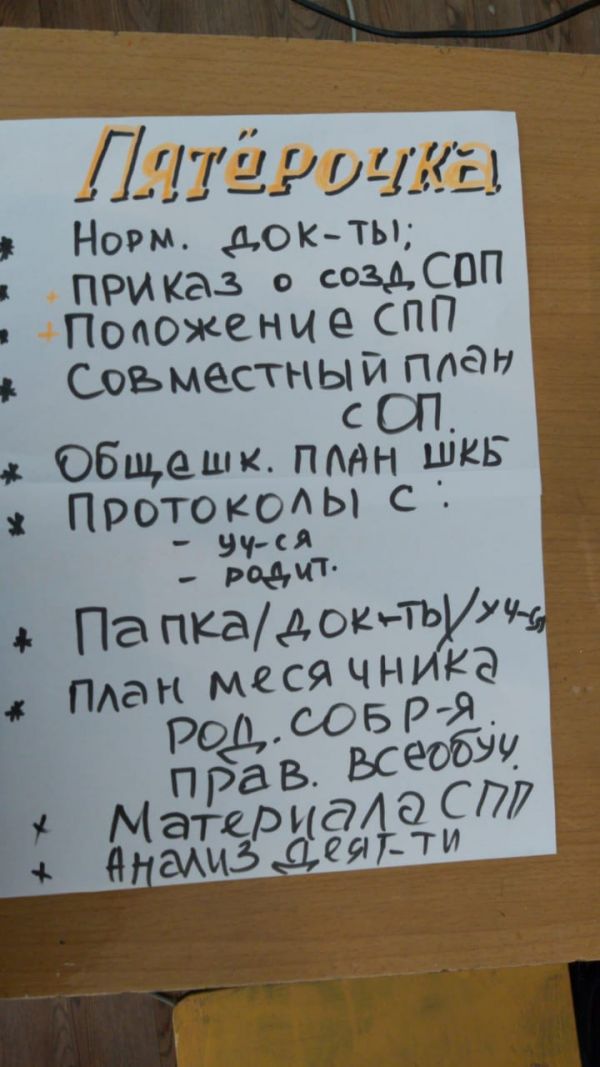 Пятёрочка
* Норм. док-ты;
* + приказ о созд СПП
* + Положение СПП
* Совместный план
с ОП.
* Общешк. план ШКБ
* Протоколы с :
- уч-ся
- родит.
* Папка/док-ты/уч-ся
* план месячника
род. собр-я.
прав. всеобуч.
* Материала СПП
* Анализ деят-ти